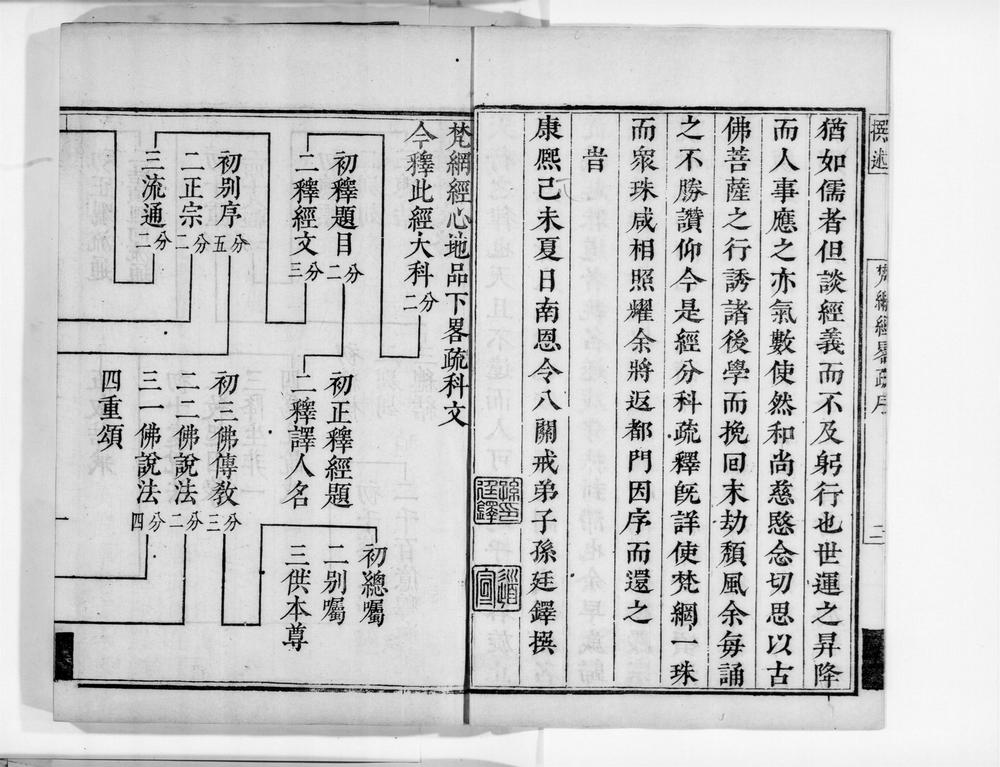 撰述
梵網經畧疏序
三
猶如儒者但談經義而不及躬行也世運之昇降
而人事應之亦氣數使然和尚慈愍念切思以古
佛菩薩之行誘諸後學而挽回末劫頽風余每誦
之不勝讚仰今是經分科疏釋旣詳使梵網一珠
而衆珠咸相照耀余將返都門因序而還之
旹
康熙己未夏日南恩令八關戒弟子孫廷鐸撰
孫印廷鐸
梵網經心地品下畧疏科文
今釋此經大科分二
初釋題目分二
二釋經文分三
初正釋經題
二釋譯人名
初總囑
二別囑
三供本尊
初別序分五
二正宗分二
三流通分二
初三佛傳教分三
二二佛說法分二
三一佛說法分四
四重頌